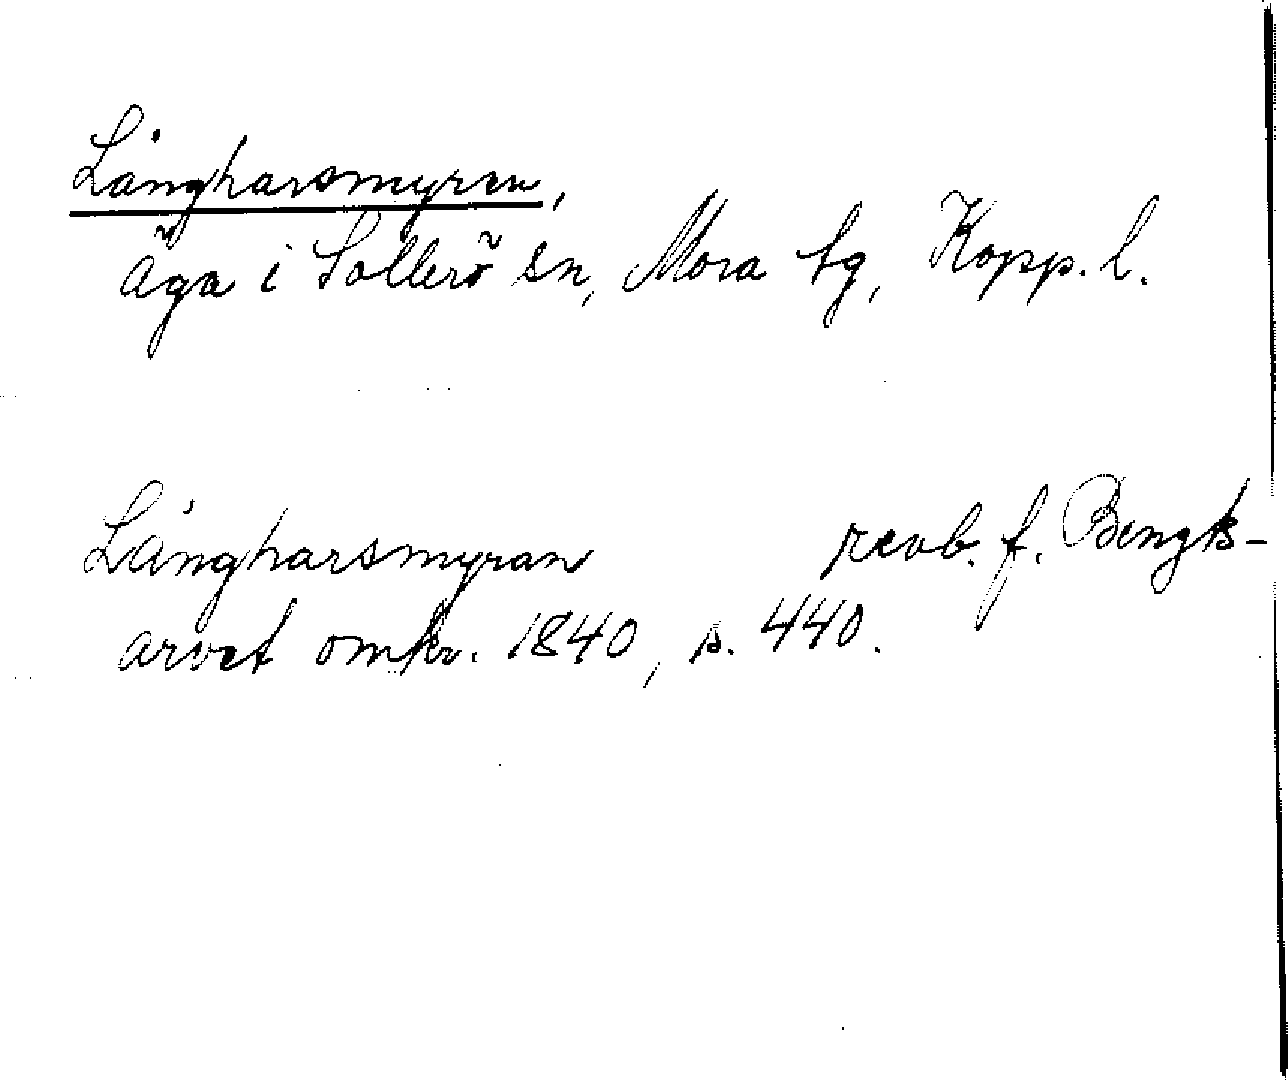 Långharsmyren,
äga i Sollerö sn, Mora tg, Kopp. l.
Långharsmyran revb. f. Bengts-
arvet omkr. 1840, s. 440.